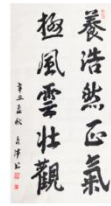 養浩然正氣
極風雲壯觀
辛丑